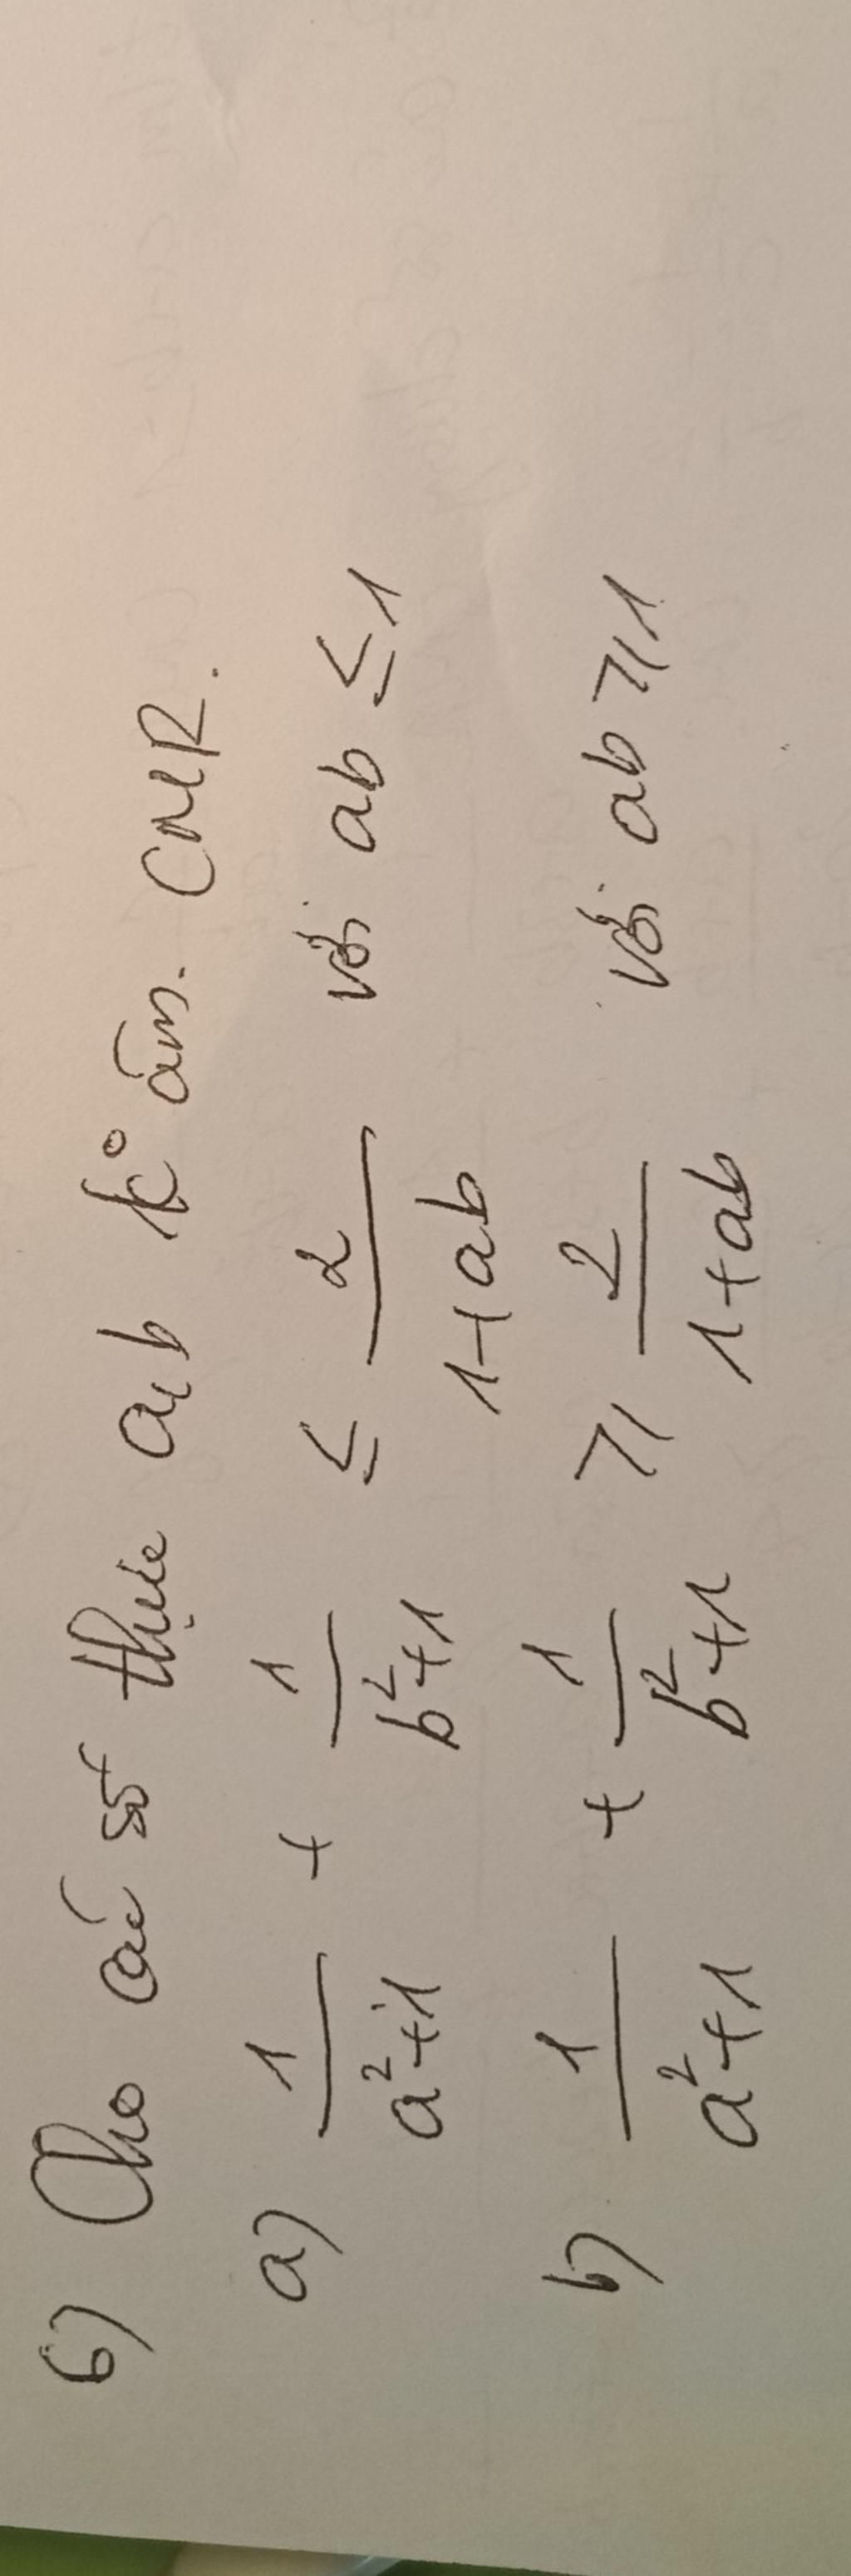 6) Cho các số thực a, b k° âm. CMR.
a) 1/(a²+1) + 1/(b²+1) ≤ 2/(1+ab) với ab ≤ 1
b) 1/(a²+1) + 1/(b²+1) ≥ 2/(1+ab) với ab ≥ 1